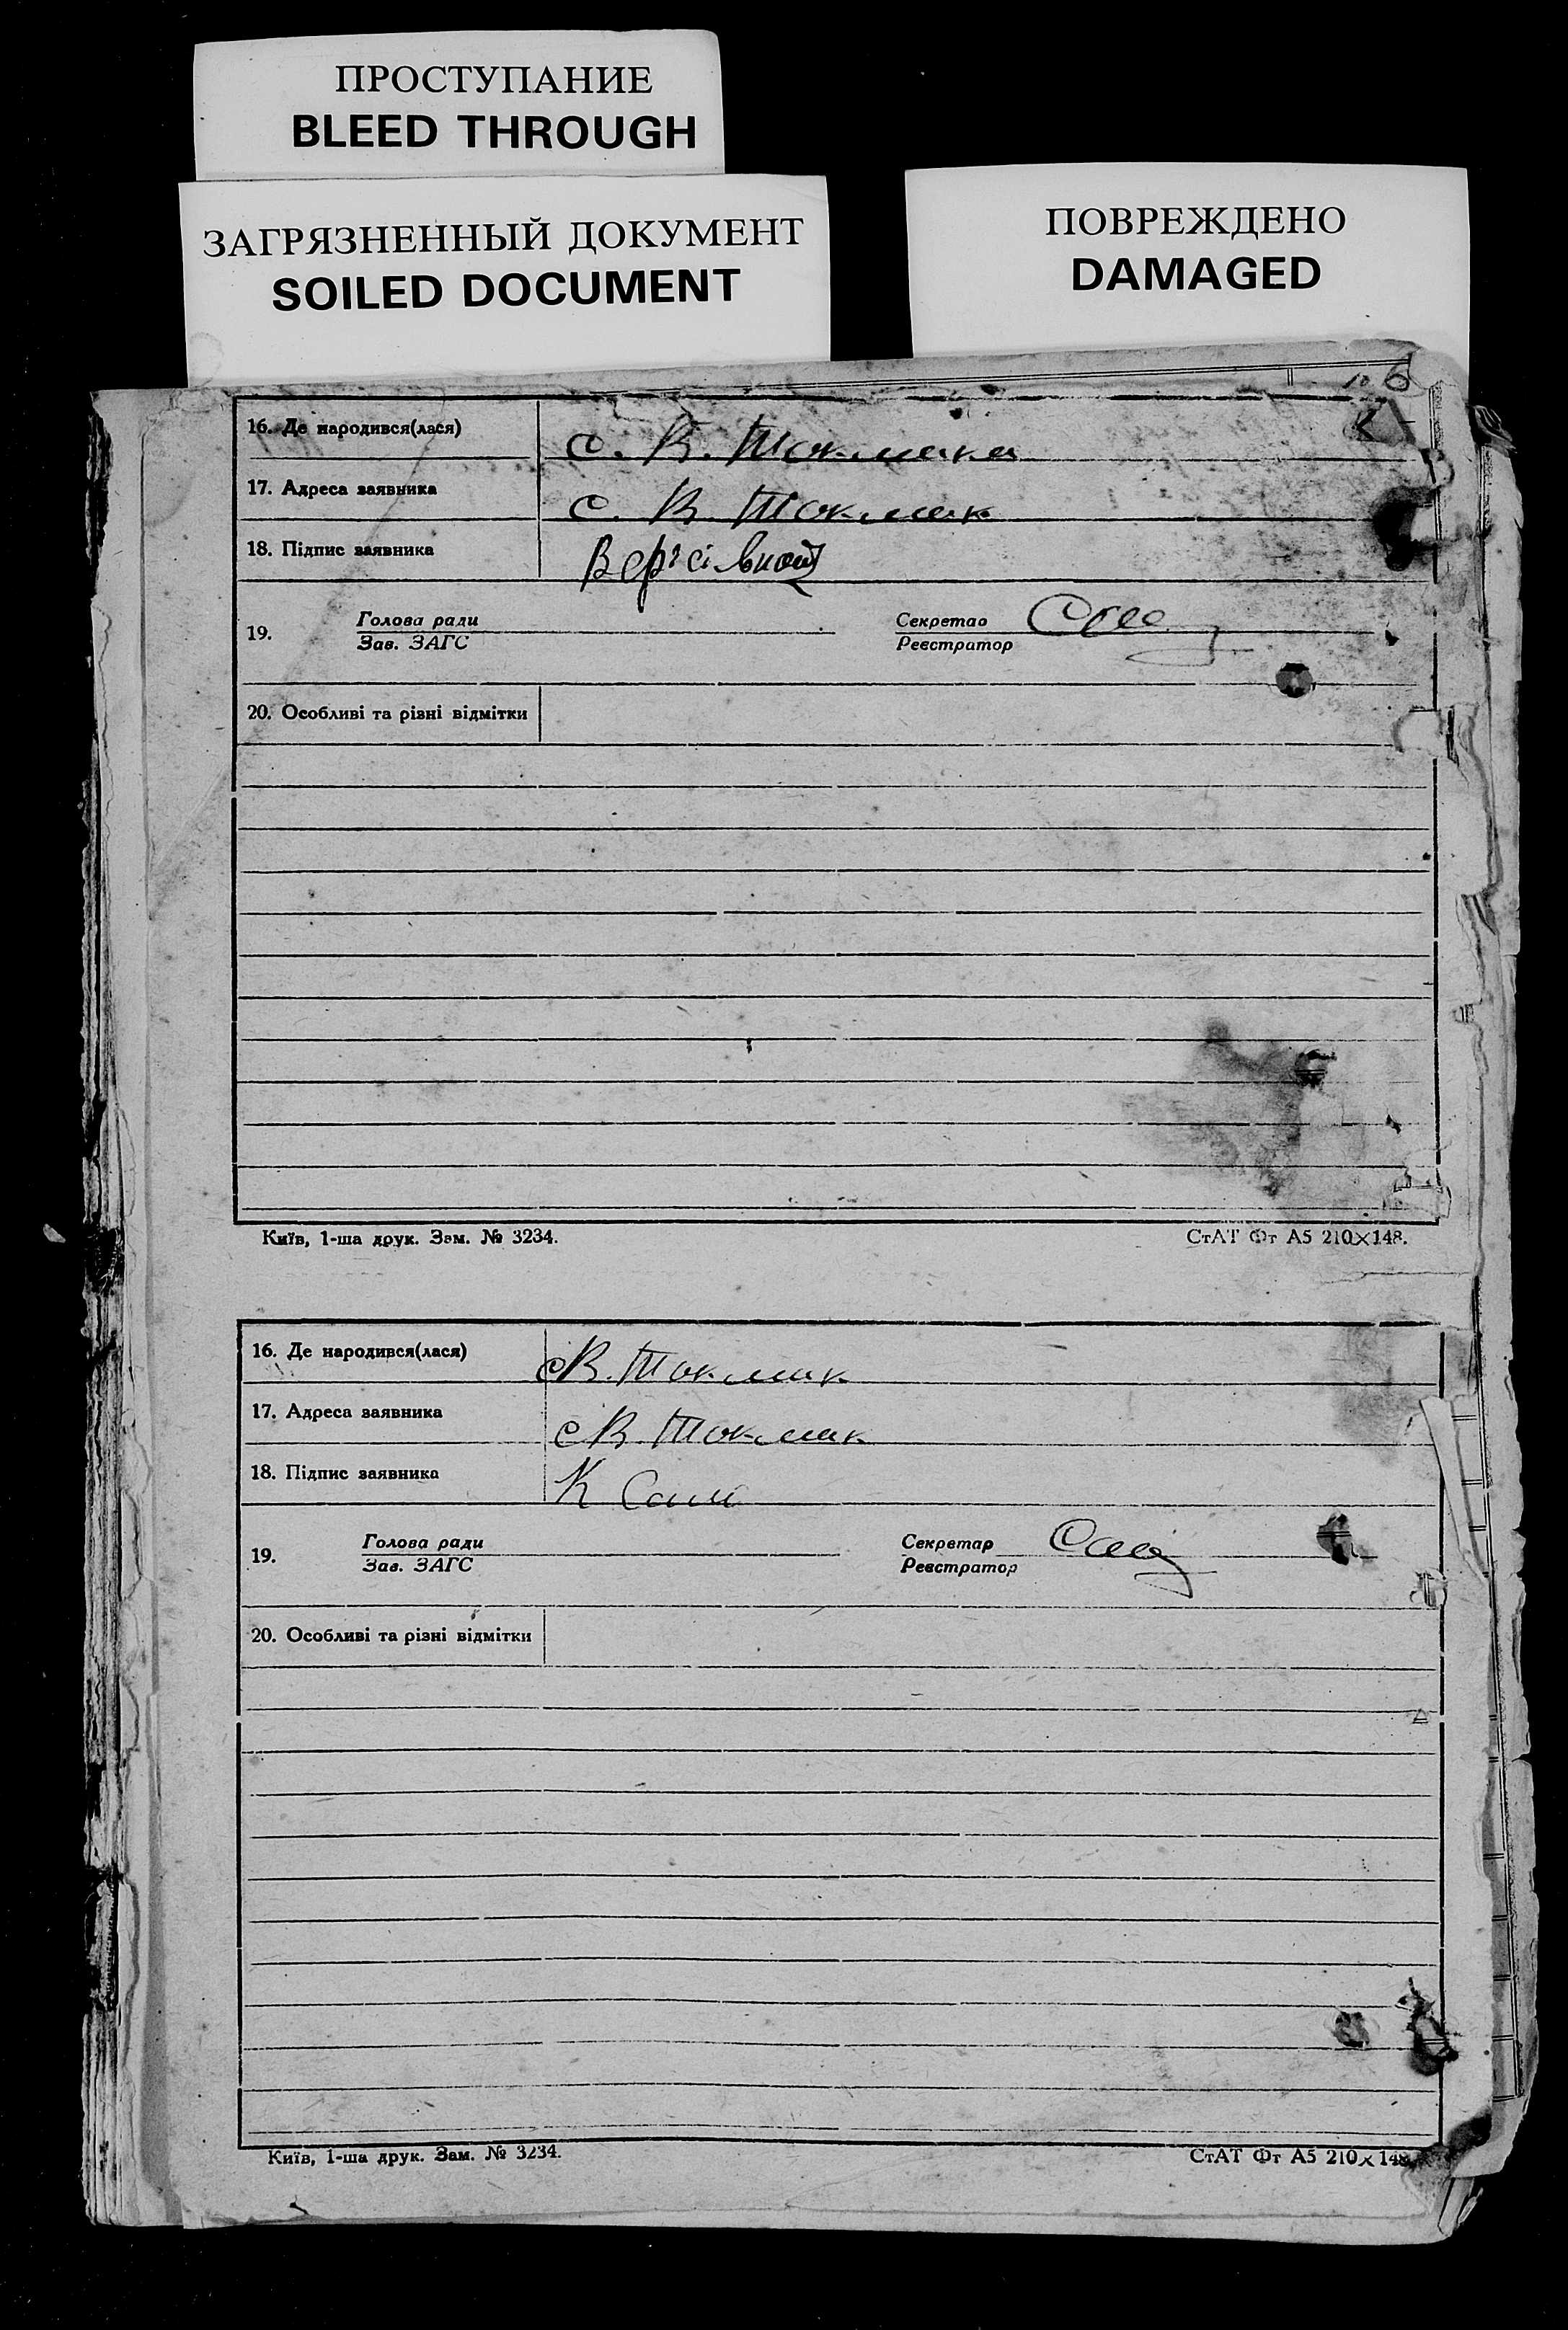 ПРОСТУПАНИЕ
BLEED THROUGH
ЗАГРЯЗНЕННЫЙ ДОКУМЕНТ
SOILED DOCUMENT
ПОВРЕЖДЕНО
DAMAGED
6
16. Де народився(лася) с. В. Токмака
17. Адреса заявника с. В. Токмак
18. Підпис заявника
19. Голова ради Секретар
Зав. ЗАГС Реєстратор
20. Особливі та різні відмітки
Київ, 1-ша друк. Зам. № 3234. СтАТ Фт А5 210×148.
16. Де народився(лася) с В. Токмак
17. Адреса заявника с В Токмак
18. Підпис заявника К
19. Голова ради Секретар
Зав. ЗАГС Реєстратор
20. Особливі та різні відмітки
Київ, 1-ша друк. Зам. № 3234. СтАТ Фт А5 210×148.